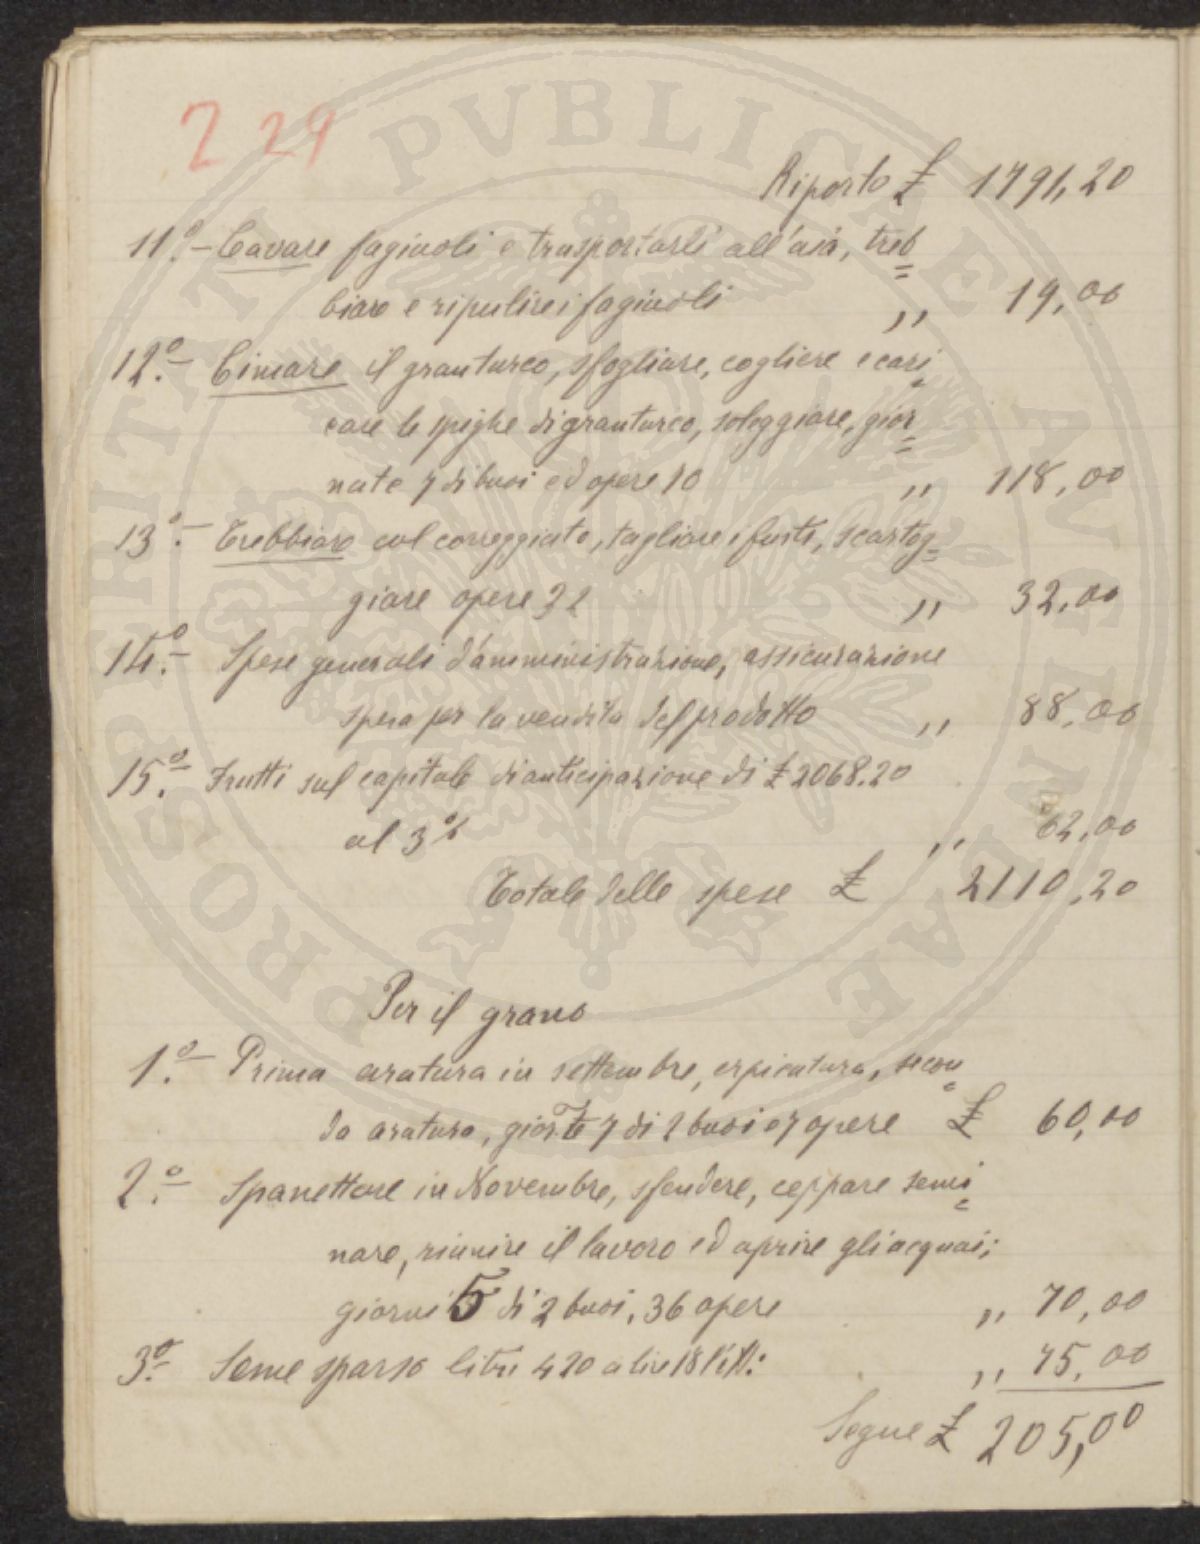 229
Riporto £ 1791,20
11.° - Cavare fagiuoli e trasportarli all'aia, treb=
biare e ripulire i fagiuoli " 19,00
12.° - Cimare il granturco, sfogliare, cogliere e cari=
care le spighe di granturco, soleggiare, gior=
nate 7 di buoi ed opere 10 " 118,00
13.° - Trebbiare col correggiato, tagliare i fusti, scartog=
giare opere 32 " 32,00
14.° - Spese generali d'amministrazione, assicurazione
spesa per la vendita del prodotto " 88,00
15.° Frutti sul capitale di anticipazione di £ 2068.20
al 3% " 62,00
Totale delle spese £ 2110,20
Per il grano
1.° - Prima aratura in settembre, erpicatura, secon=
da aratura, gior.te 7 di 2 buoi e 7 opere £ 60,00
2.° - Spanettare in Novembre, sfendere, ceppare semi=
nare, riunire il lavoro ed aprire gli acquai;
giorni 5 di 2 buoi, 36 opere " 70,00
3.° Seme sparso litri 420 a lire 18 l'Ett: " 75,00
Segue £ 205,00
PROSPERITATI PVBLICAE AVGENDAE